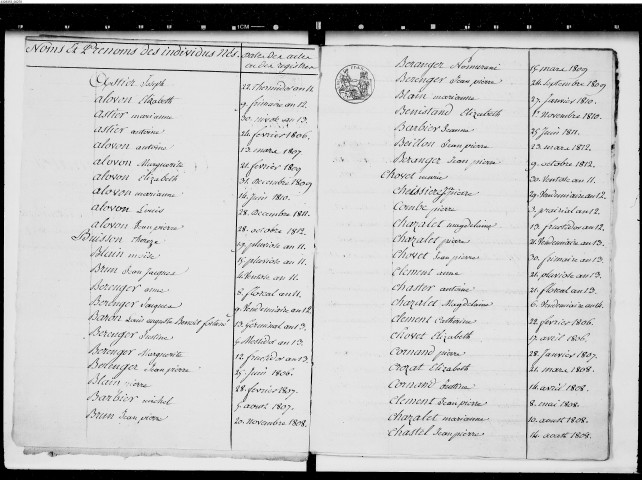 Noms & Prenoms des individus Nés.
Date des actes ou des registres
Astier Joseph 22 thermidor an 11.
alovon Elizabeth 9 frimaire an 12.
astier marianne 30 nivose an 13.
astier antoine 24 fevrier 1806.
alovon antoine 13 mars 1807
alovon Marguerite 21 fevrier 1809
alovon Elizabeth 31 decembre 1809
alovon marianne 14 juin 1810.
alovon Louis 28 decembre 1811.
alovon Jean pierre 28 octobre 1812.
Buisson therèze 19 pluviose an 11.
Blain 15 pluviose an 11.
Brun Jean Jacques 4 Ventose an 11.
Berenger anne 8 floreal an 11.
Berenger Jacques 9 Vendemiaire an 12.
Baron Louis auguste Benoit 13 Germinal an 13.
Berenger Justine Messidor an 13.
Berenger Marguerite 12 fructidor an 13.
Berenger Jean pierre 25 juin 1806.
Blain pierre 28 fevrier 1807.
Barbier michel 5 aoust 1807.
Brun Jean pierre 20 novembre 1808.
Beranger 15 mars 1809
Berenger Jean pierre 24 septembre 1809
Blain marianne 27 janvier 1810.
Benistand Elizabeth 1er novembre 1810.
Barbier Jeanne 25 juin 1811.
Boillon Jean pierre 23 mars 1812.
Beranger Jean pierre 9 octobre 1812.
Chovet marie 30 Ventose an 11.
Cheissier pierre 29 Vendemiaire an 12.
Combe pierre 3 prairial an 12.
Chazalet magdelaine 13 fructidor an 12.
Chazalet pierre 21 Vendemiaire an 13.
Chovet Jean pierre 30 frimaire an 13.
Clement anne 21 pluviose an 13.
Chaster antoine 21 floreal an 13.
Chazalet Magdelaine 6 Vendemiaire an 14.
Clement Catherine 22 fevrier 1806.
Chovet Elizabeth 17 avril 1806.
Comand pierre 28 janvier 1807.
Crozat Elizabeth 21 mars 1808.
Comand Justine 14 avril 1808.
Clement Jean pierre 8 mai 1808.
Chazalet marianne 10 aoust 1808.
Chastel Jean pierre 14 aoust 1808.